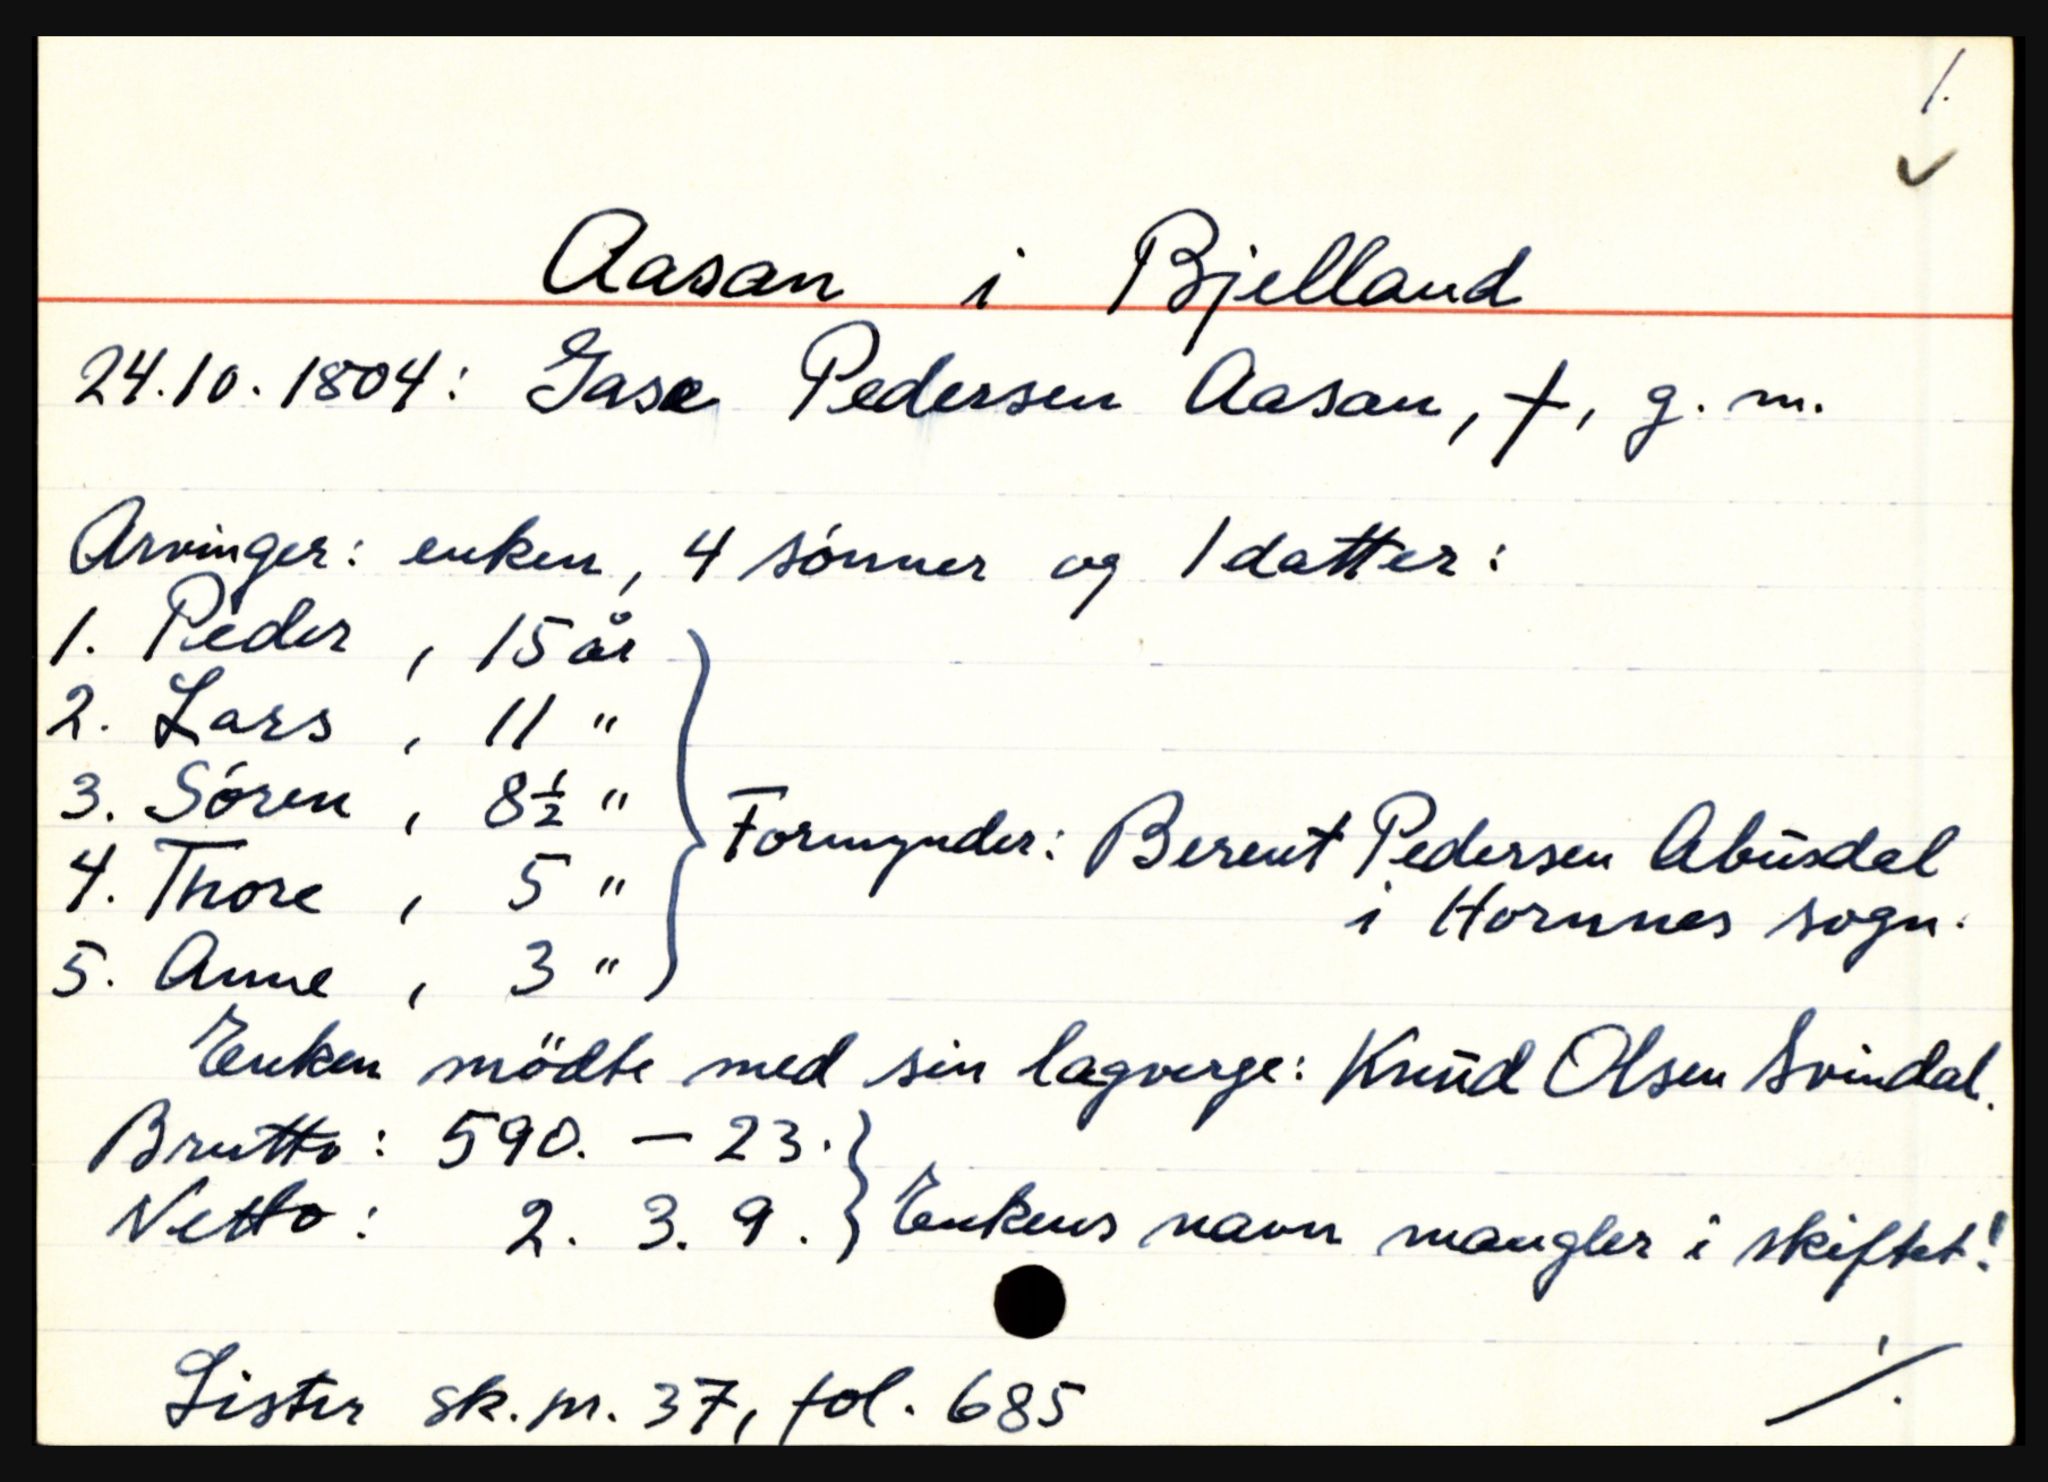 1.
Aasan i Bjelland
24.10.1804: Gase Pedersen Aasan, †, g. m.
Arvinger: enken, 4 sónner og 1 datter:
1. Peder, 15 år
2. Lars, 11 "
3. Sóren, 8½ "
4. Thore, 5 "
5. Anne, 3 "
Formynder: Berent Pedersen Abusdal
i Hornnes sogn.
Enken mödte med sin lagverge: Knud Olsen Svindal.
Brutto: 590. — 23.
Netto: 2. 3. 9.
Enkens navn mangler i skiftet!
Lister sk. pr. 37, fol. 685